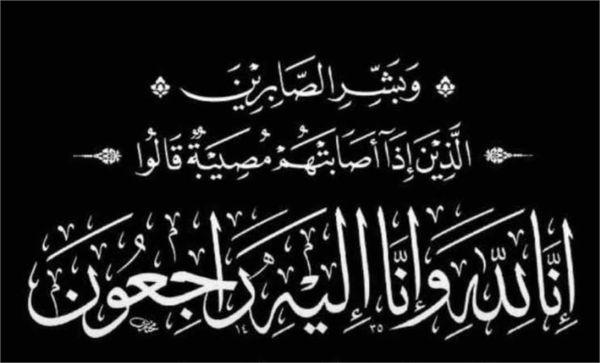 وَبَشِّرِ الصَّابِرِيْنَ
الَّذِيْنَ إِذَا أَصَابَتْهُمْ مُصِيْبَةٌ قَالُوا
إِنَّا لِلّٰهِ وَإِنَّا إِلَيْهِ رَاجِعُونَ
١٤٣٥